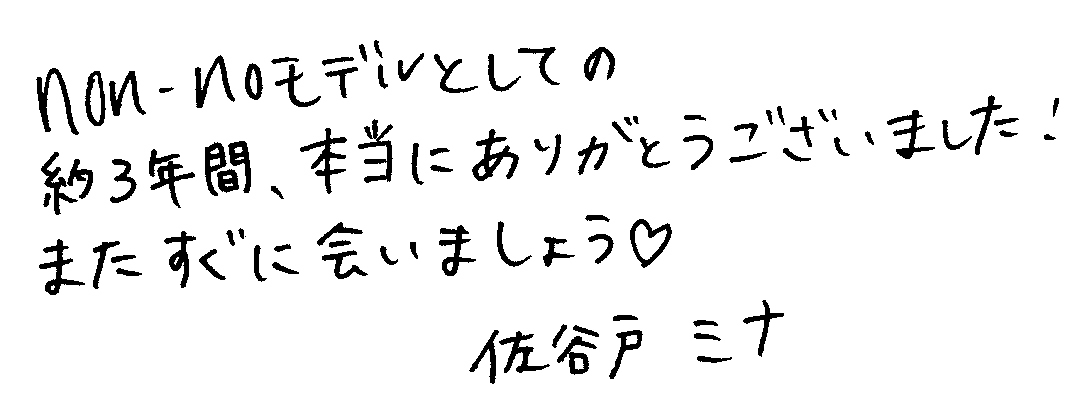 non-noモデルとしての
約3年間、本当にありがとうございました!
またすぐに会いましょう♡
佐谷戸 ミナ